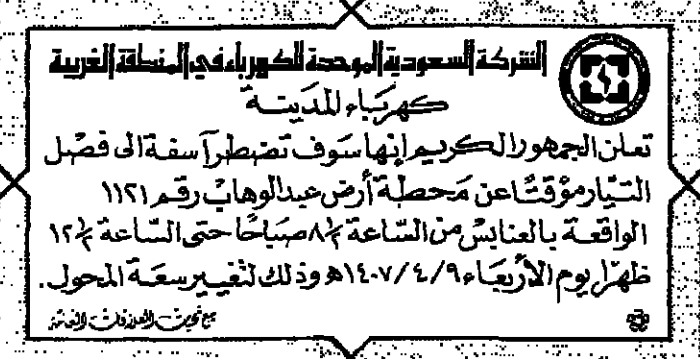 الشركة السعودية الموحدة للكهرباء في المنطقة الغربية
كهرباء المدينة
تعلن الجمهور الكريم إنها سوف تضطر آسفة الى فصل
التيار مؤقتًا عن محطة أرض عبد الوهاب رقم ١١٢١
الواقعة بالعنابس من الساعة ٨/٢١ صباحًا حتى الساعة ١٢/٢١
ظهرًا يوم الأربعاء ١٤٠٧/٤/٩ه وذلك لتغيير سعة المحول.
مع تحيات العلاقات العامة